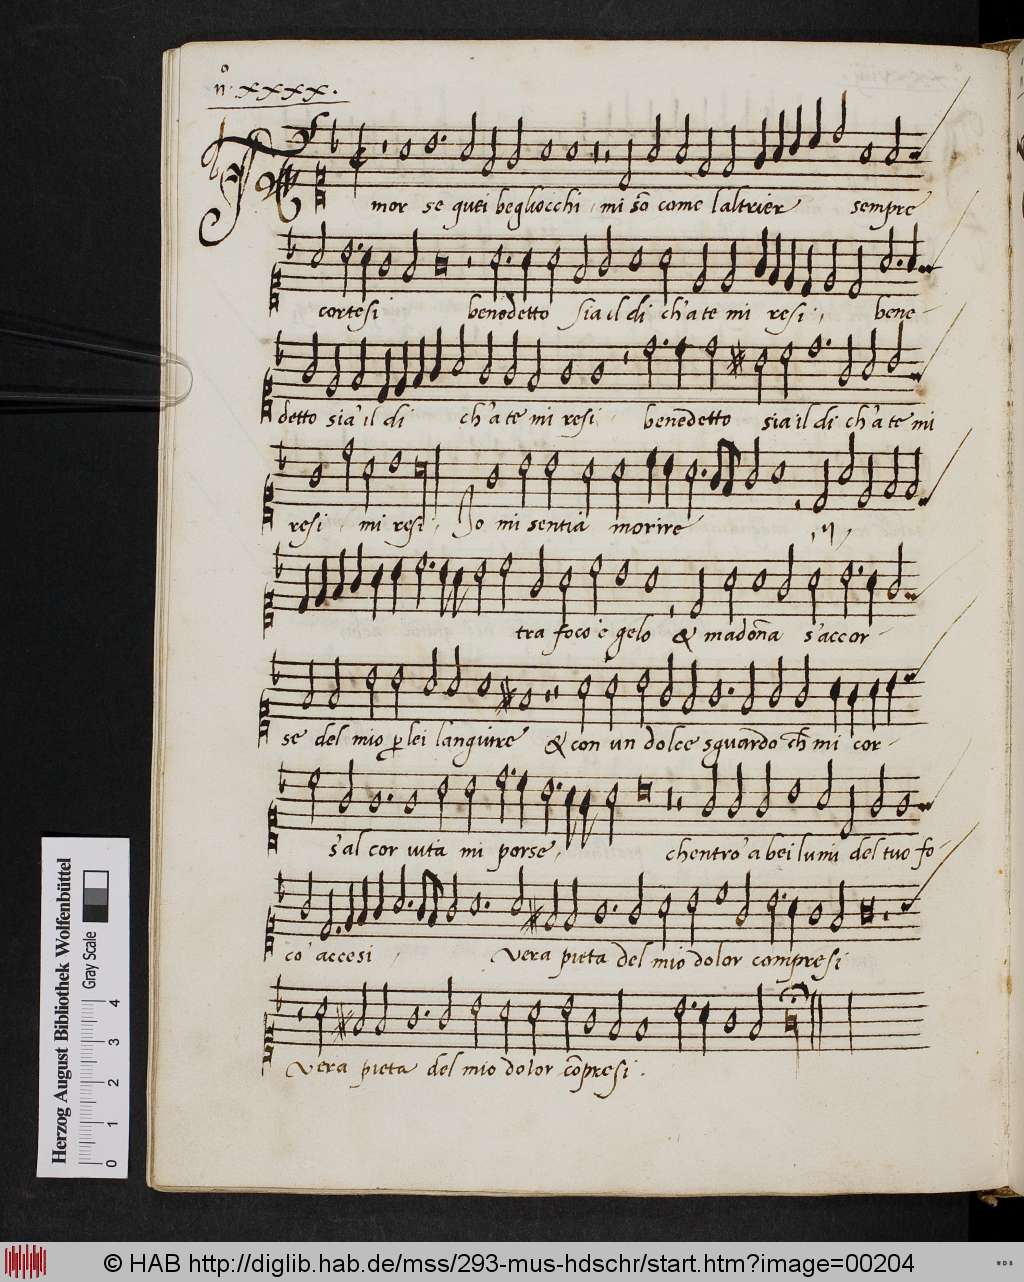 nº. xxxx.
mor se quei begliocchi mi sõ come laltrier sempre
cortesi benedetto sia il di ch'a te mi resi, bene-
detto sia il di ch'a te mi resi benedetto sia il di ch'a te mi
resi mi resi, Io mi sentia morire ,ij,
tra foco è gelo & madoña s'accor-
se del mio p lei languire & con un dolce sguardo ch̃ mi cor-
s'al cor vita mi porse, chentro' a bei lumi del tuo fo-
co' accesi, vera pieta del mio dolor compresi
vera pieta del mio dolor cõpresi.
Herzog August Bibliothek Wolfenbüttel
Gray Scale
0 1 2 3 4
© HAB http://diglib.hab.de/mss/293-mus-hdschr/start.htm?image=00204